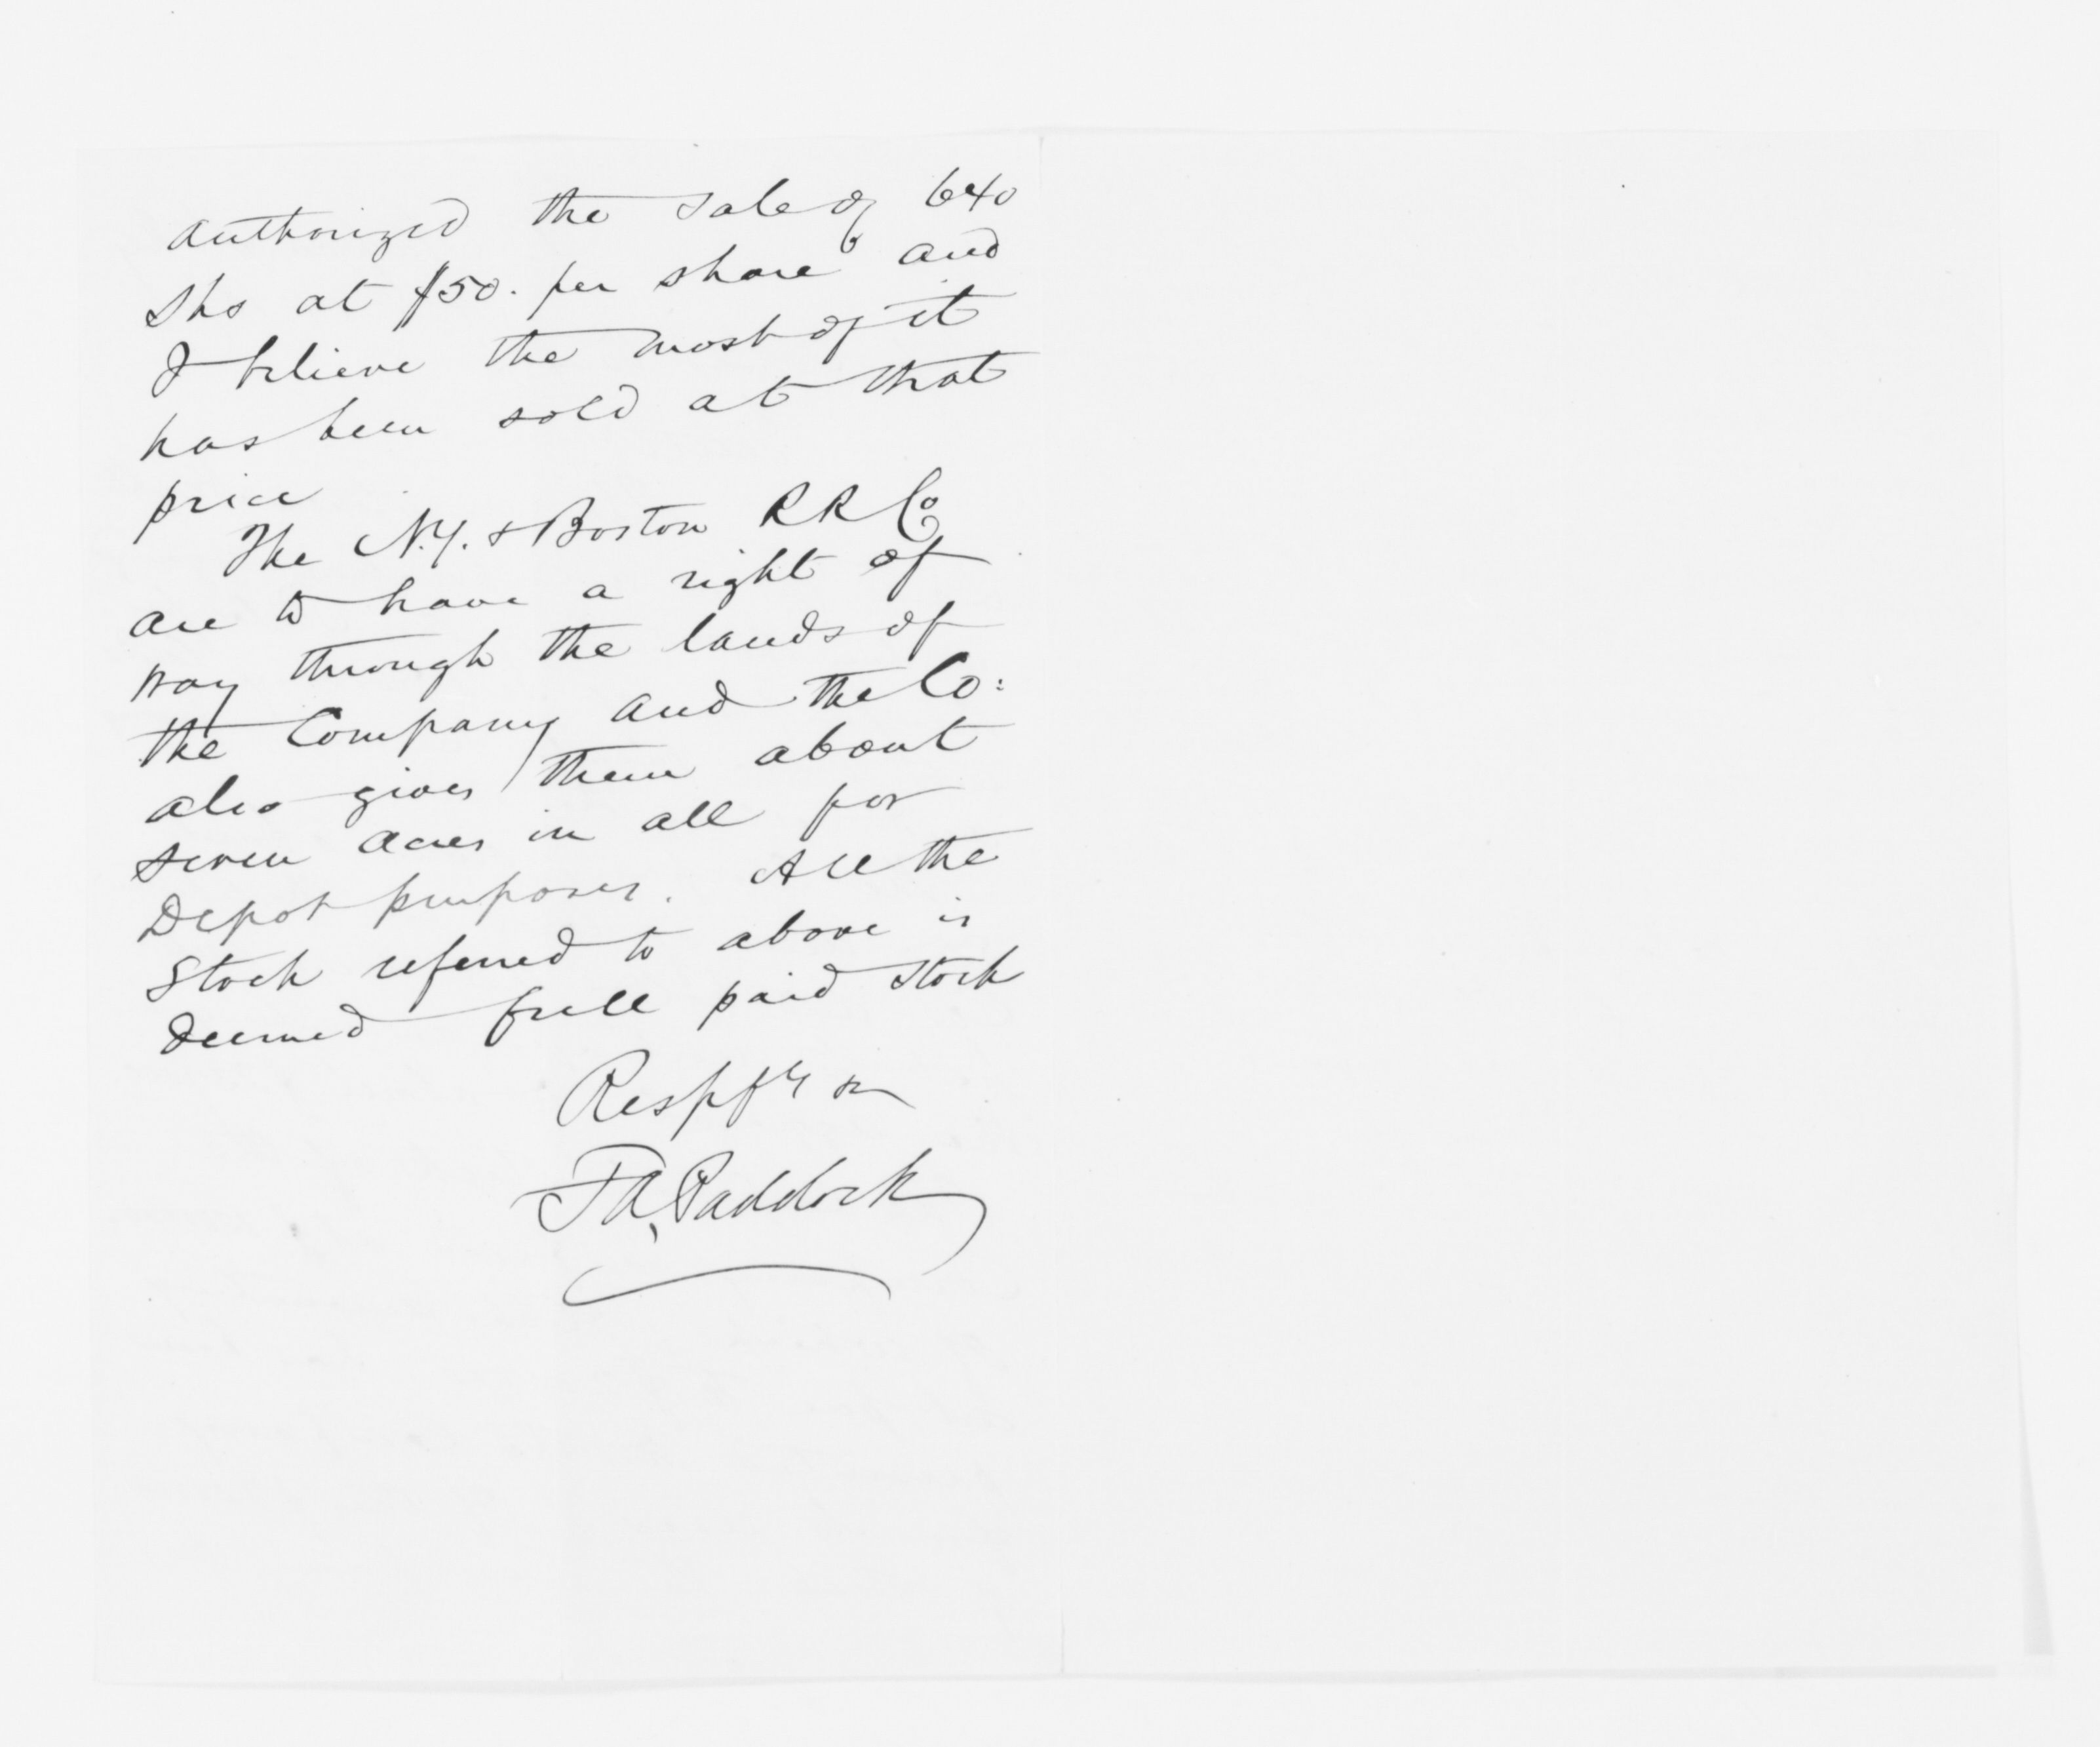 authorized the sale of 640
Shs at $50. per share and
I believe the most of it
has been sold at that
price
The N.Y. & Boston R R Co
are to have a right of
way through the lands of
the Company and the Co:
also gives them about
seven acres in all for
Depot purposes. All the
Stock referred to above is
deemed full paid stock
Respfy
Paddock